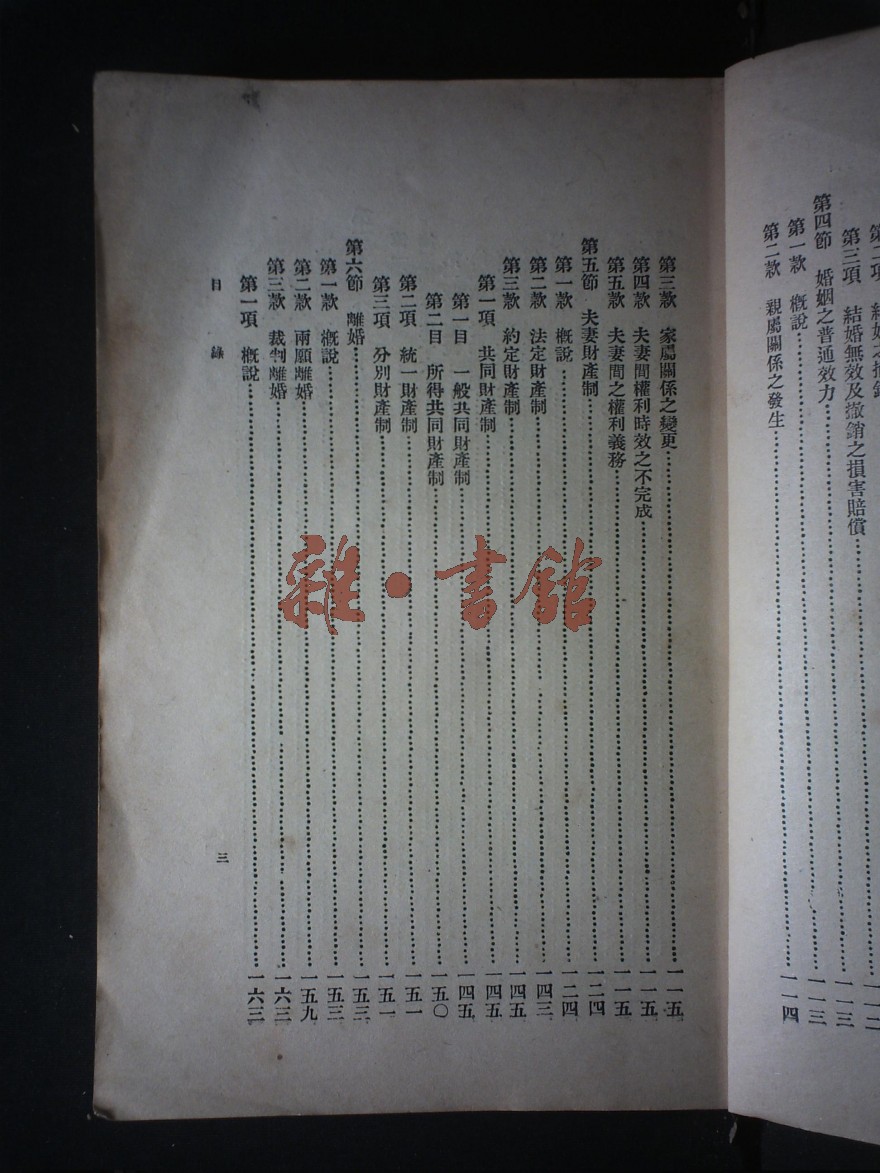 第三項　結婚無效及撤銷之損害賠償……一一三
第四節　婚姻之普通效力……一一三
第一款　概說……一一三
第二款　親屬關係之發生……一一四
第三款　家屬關係之變更……一一五
第四款　夫妻間權利時效之不完成……一一五
第五款　夫妻間之權利義務……一一五
第五節　夫妻財產制……一二四
第一款　概說……一二四
第二款　法定財產制……一四三
第三款　約定財產制……一四五
第一項　共同財產制……一四五
第一目　一般共同財產制……一四五
第二目　所得共同財產制……一五〇
第二項　統一財產制……一五一
第三項　分別財產制……一五一
第六節　離婚……一五三
第一款　概說……一五三
第二款　兩願離婚……一五九
第三款　裁判離婚……一六三
第一項　概說……一六三
目錄
三
雜·書館